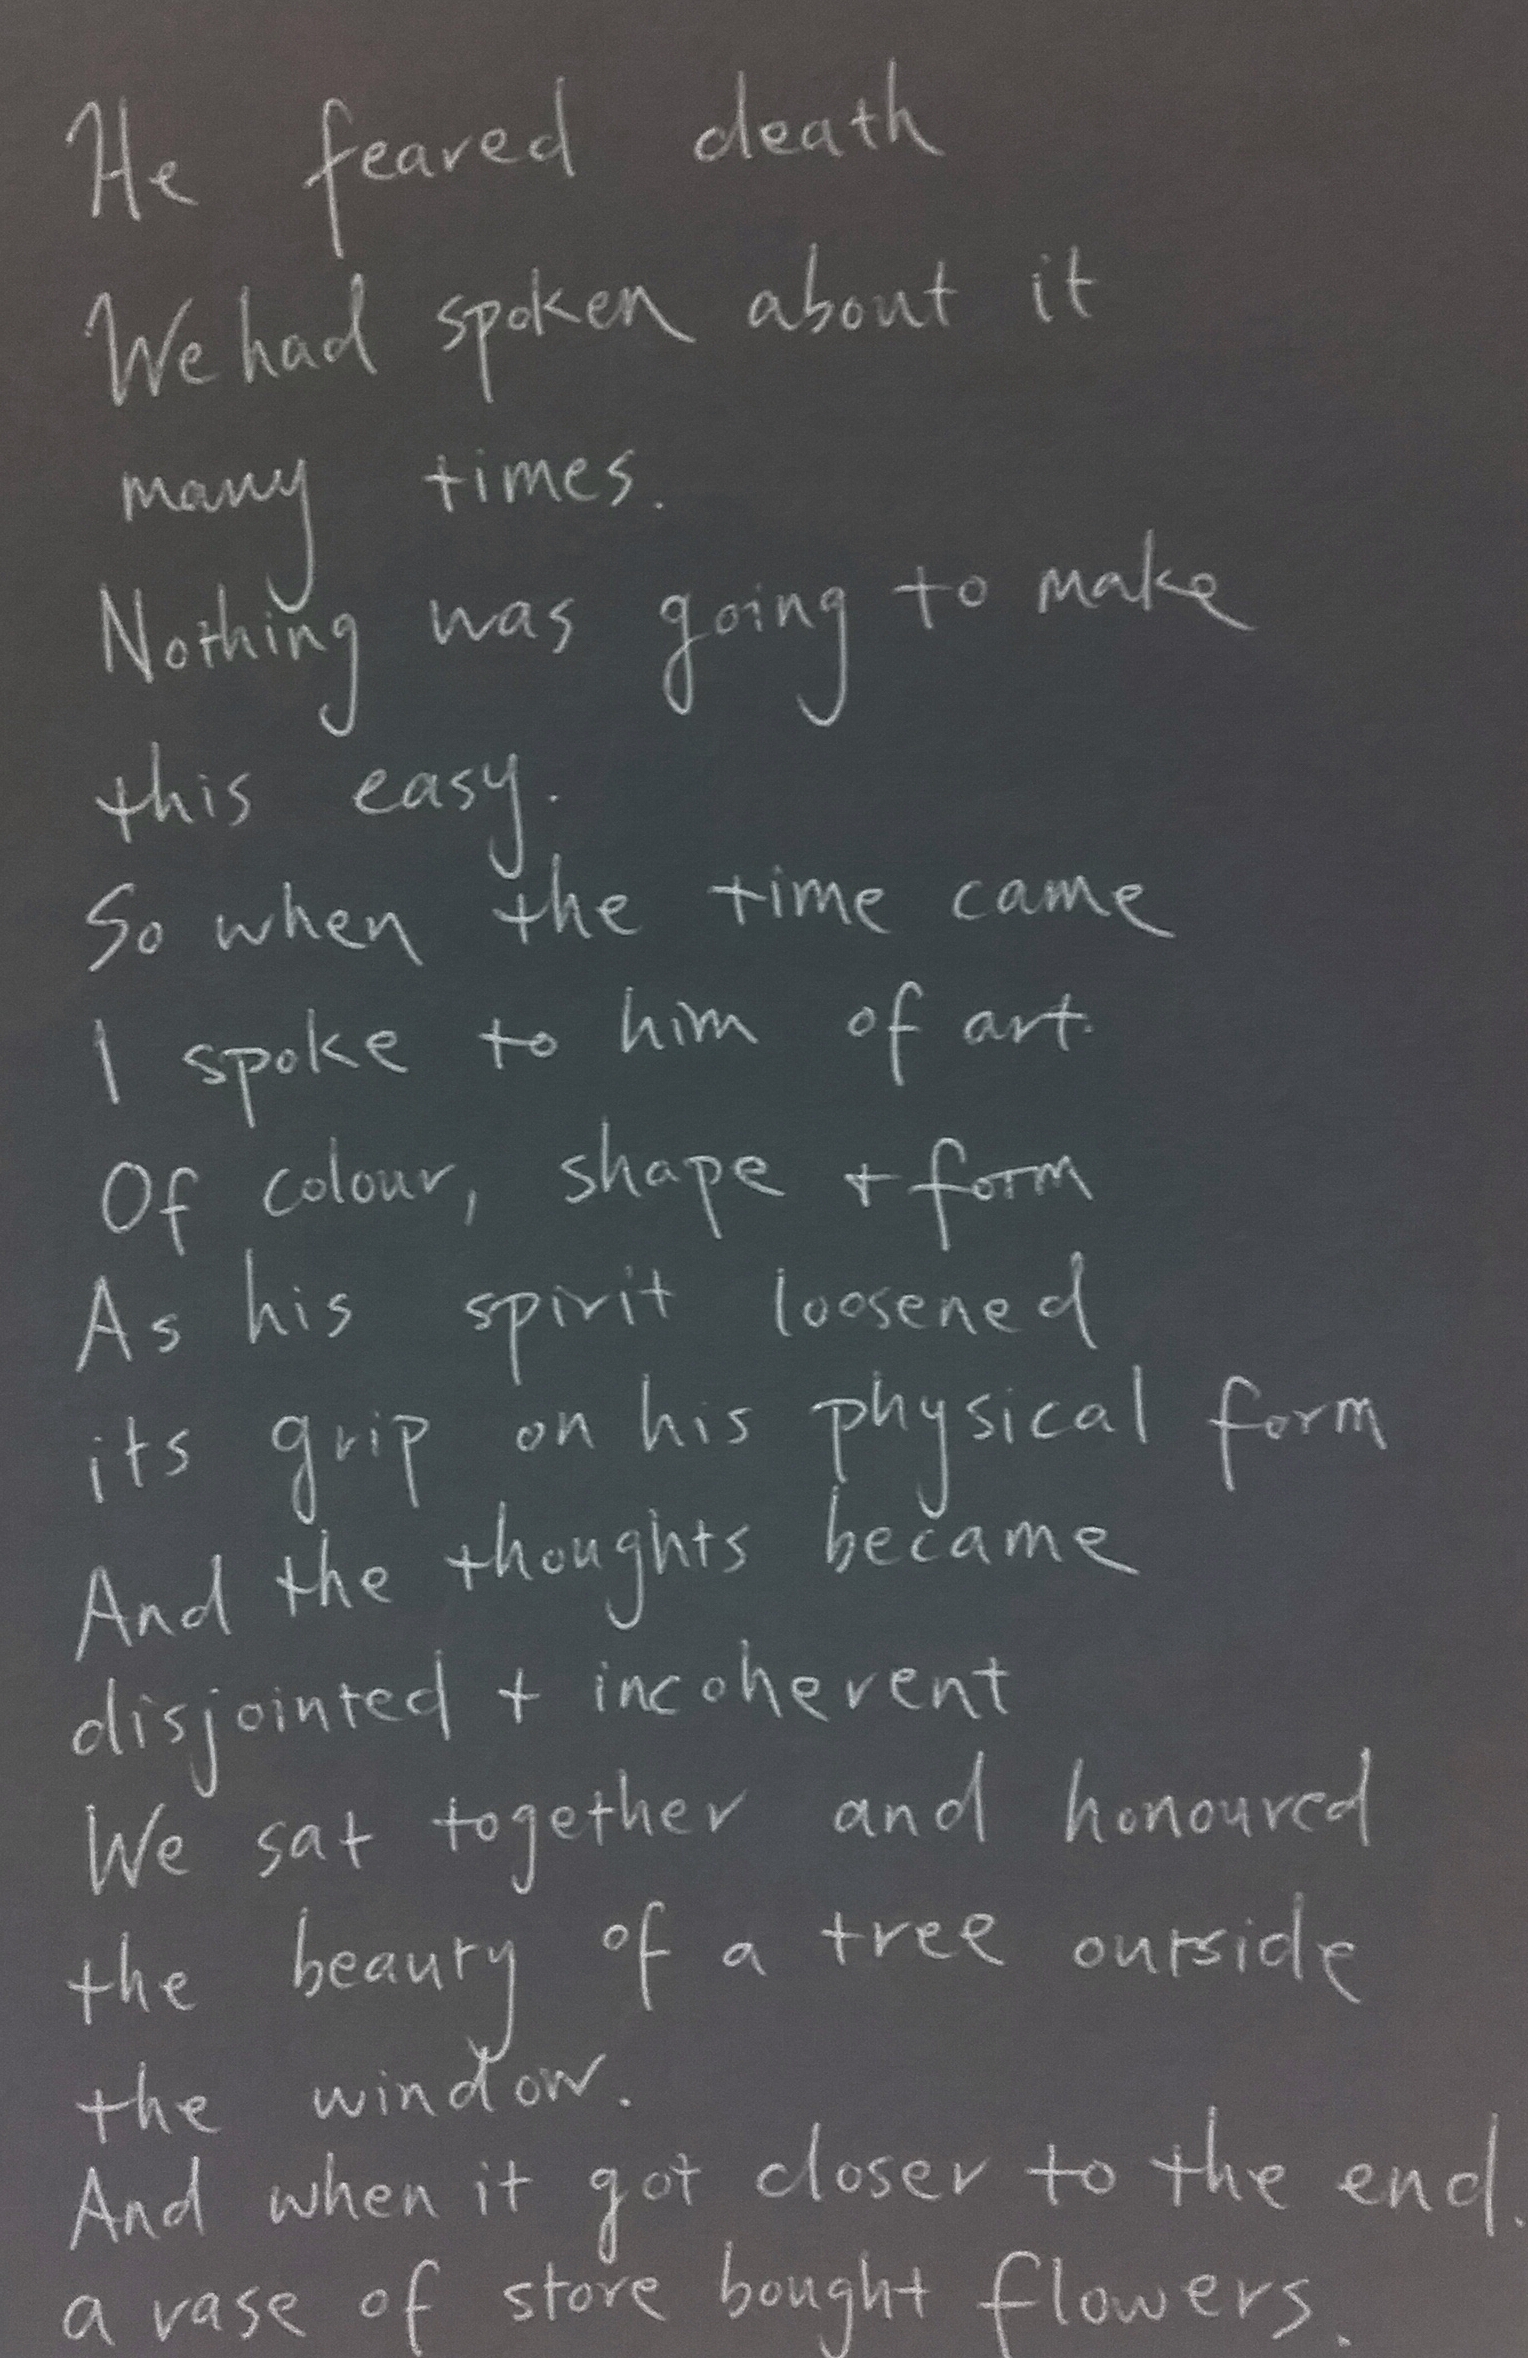 He feared death
We had spoken about it
many times.
Nothing was going to make
this easy.
So when the time came
I spoke to him of art.
Of colour, shape + form
As his spirit loosened
its grip on his physical form
And the thoughts became
disjointed + incoherent
We sat together and honoured
the beauty of a tree outside
the window.
And when it got closer to the end.
a vase of store bought flowers.